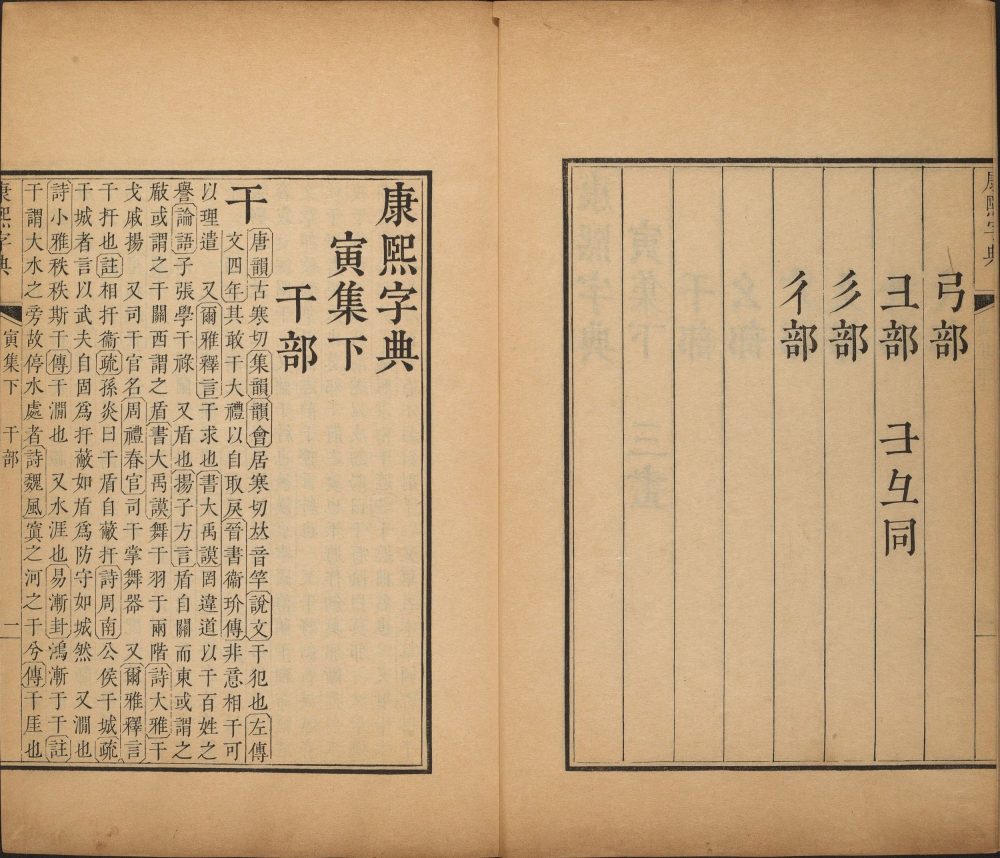 康熙字典
弓部
彐部 彐彑同
彡部
彳部
康熙字典
寅集下
干部
干
唐韻古寒切集韻韻會居寒切𠀤音竿說文干犯也左傳
文四年其敢干大禮以自取戾晉書衞玠傳非意相干可
以理遣 又爾雅釋言干求也書大禹謨罔違道以干百姓之
譽論語子張學干祿 又盾也揚子方言盾自關而東或謂之
瞂或謂之干關西謂之盾書大禹謨舞干羽于兩階詩大雅干
戈戚揚 又司干官名周禮春官司干掌舞器 又爾雅釋言
干扞也註相扞衞疏孫炎曰干盾自蔽扞詩周南公侯干城疏
干城者言以武夫自固爲扞蔽如盾爲防守如城然 又澗也
詩小雅秩秩斯干傳干澗也 又水涯也易漸卦鴻漸于干註
干謂大水之旁故停水處者詩魏風寘之河之干兮傳干厓也
康熙字典 寅集下 干部 一